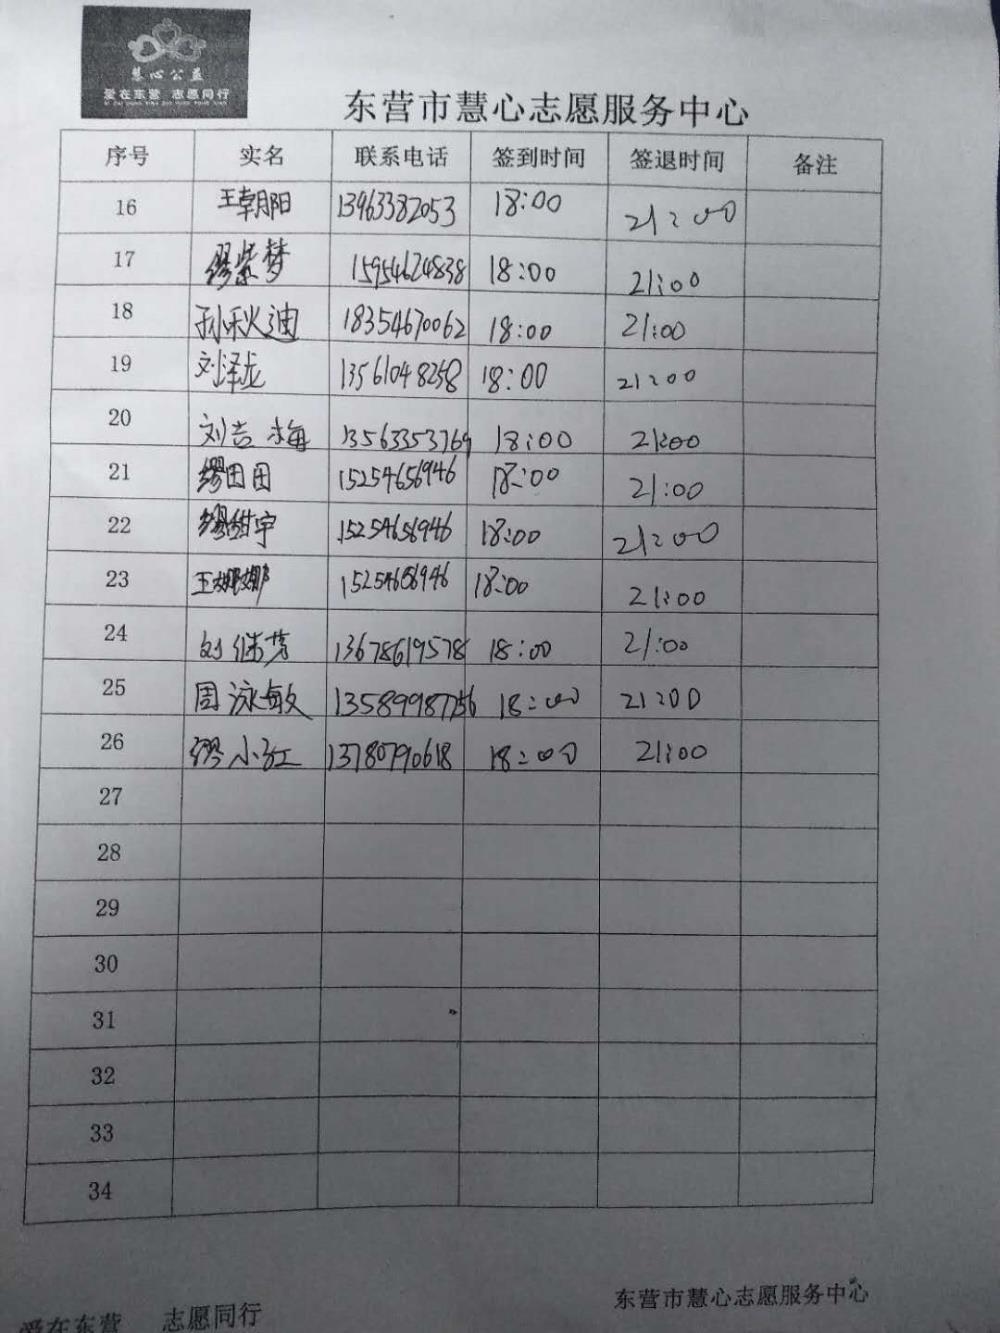 慧心公益
爱在东营 志愿同行
东营市慧心志愿服务中心
序号 实名 联系电话 签到时间 签退时间 备注
16 王朝阳 13963382053 18:00 21:00
17 缪紫梦 15954624838 18:00 21:00
18 孙秋迪 18354670062 18:00 21:00
19 刘泽龙 13561048258 18:00 21:00
20 刘吉梅 13563353769 18:00 21:00
21 缪田田 15254656946 18:00 21:00
22 缪甜宇 15254656946 18:00 21:00
23 王娜娜 15254656946 18:00 21:00
24 刘继芳 13678619578 18:00 21:00
25 周泳敏 18:00 21:00
26 缪小红 13780790618 18:00 21:00
27
28
29
30
31
32
33
34
爱在东营 志愿同行 东营市慧心志愿服务中心